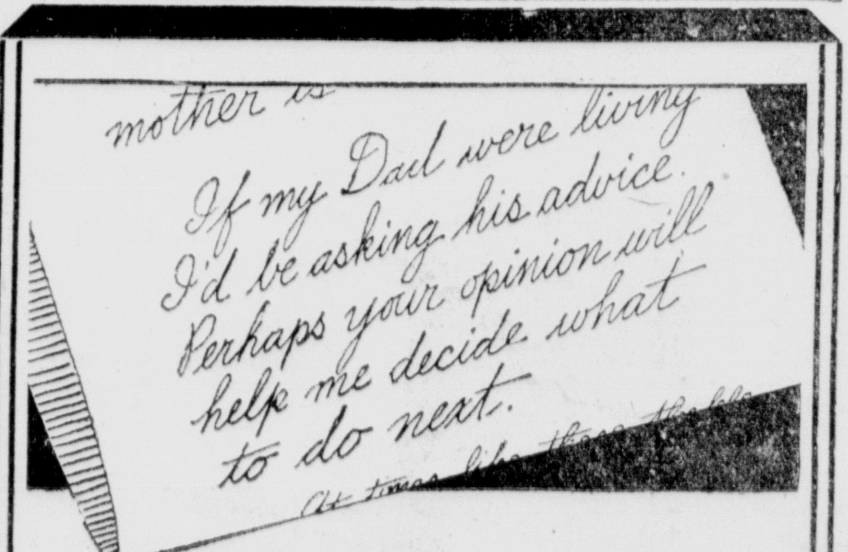 mother is
If my Dad were living
I'd be asking his advice.
Perhaps your opinion will
help me decide what
to do next.
At times like these the